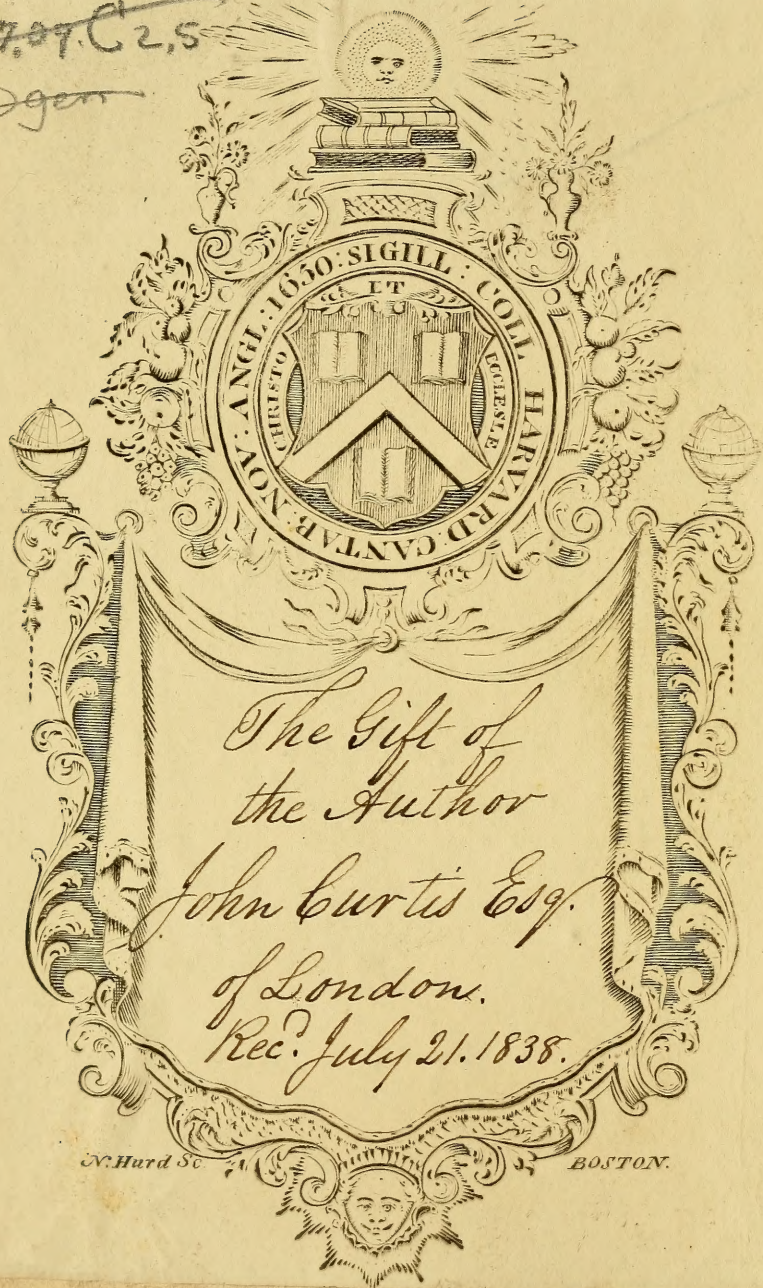 C 2,5
SIGILL : COLL HARVARD : CANTAB : NOV : ANGL : 1650 :
CHRISTO
ET
ECCLESIÆ
The Gift of
the Author
John Curtis Esq.
of London.
Rec.d July 21. 1838.
N. Hurd Sc
BOSTON.